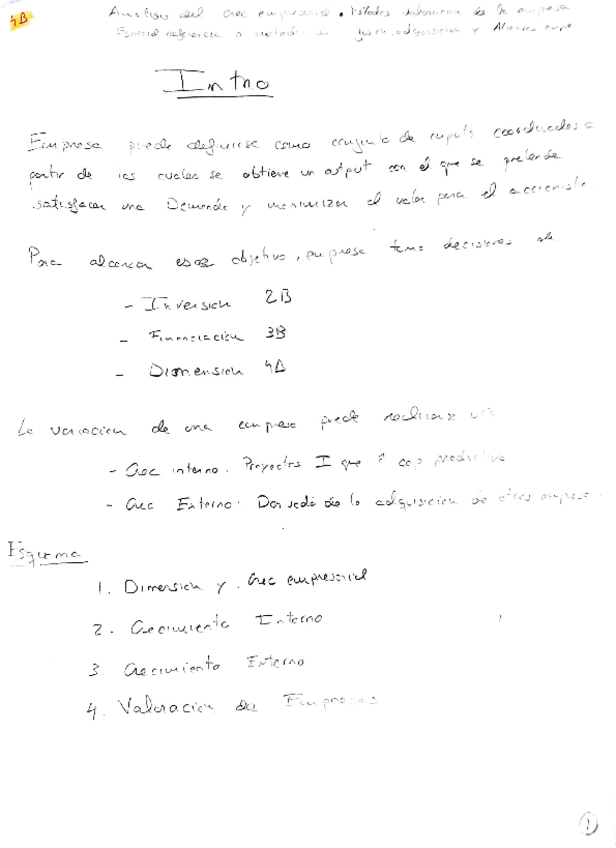 4B
Analisis del Crec empresarial. Metodos valoracion de la empresa
Especial referencia a metodos de fusion, adquisicion y Alianzas empr
Intro
Empresa puede definirse como conjunto de inputs coordinados a
partir de los cuales se obtiene un output con el que se pretende
satisfacer una Demanda y maximizar el valor para el accionista
Para alcanzar esos objetivo, empresa toma decisiones de
- Inversion 2B
- Financiacion 3B
- Dimension 4B
La variacion de una empresa puede realizarse via
- Crec interno. Proyectos I que ↑ cap productiva
- Crec Externo: Derivado de la adquisicion de otras empresas
Esquema
1. Dimension y Crec empresarial
2. Crecimiento Interno
3. Crecimiento Externo
4. Valoracion de Empresas
1